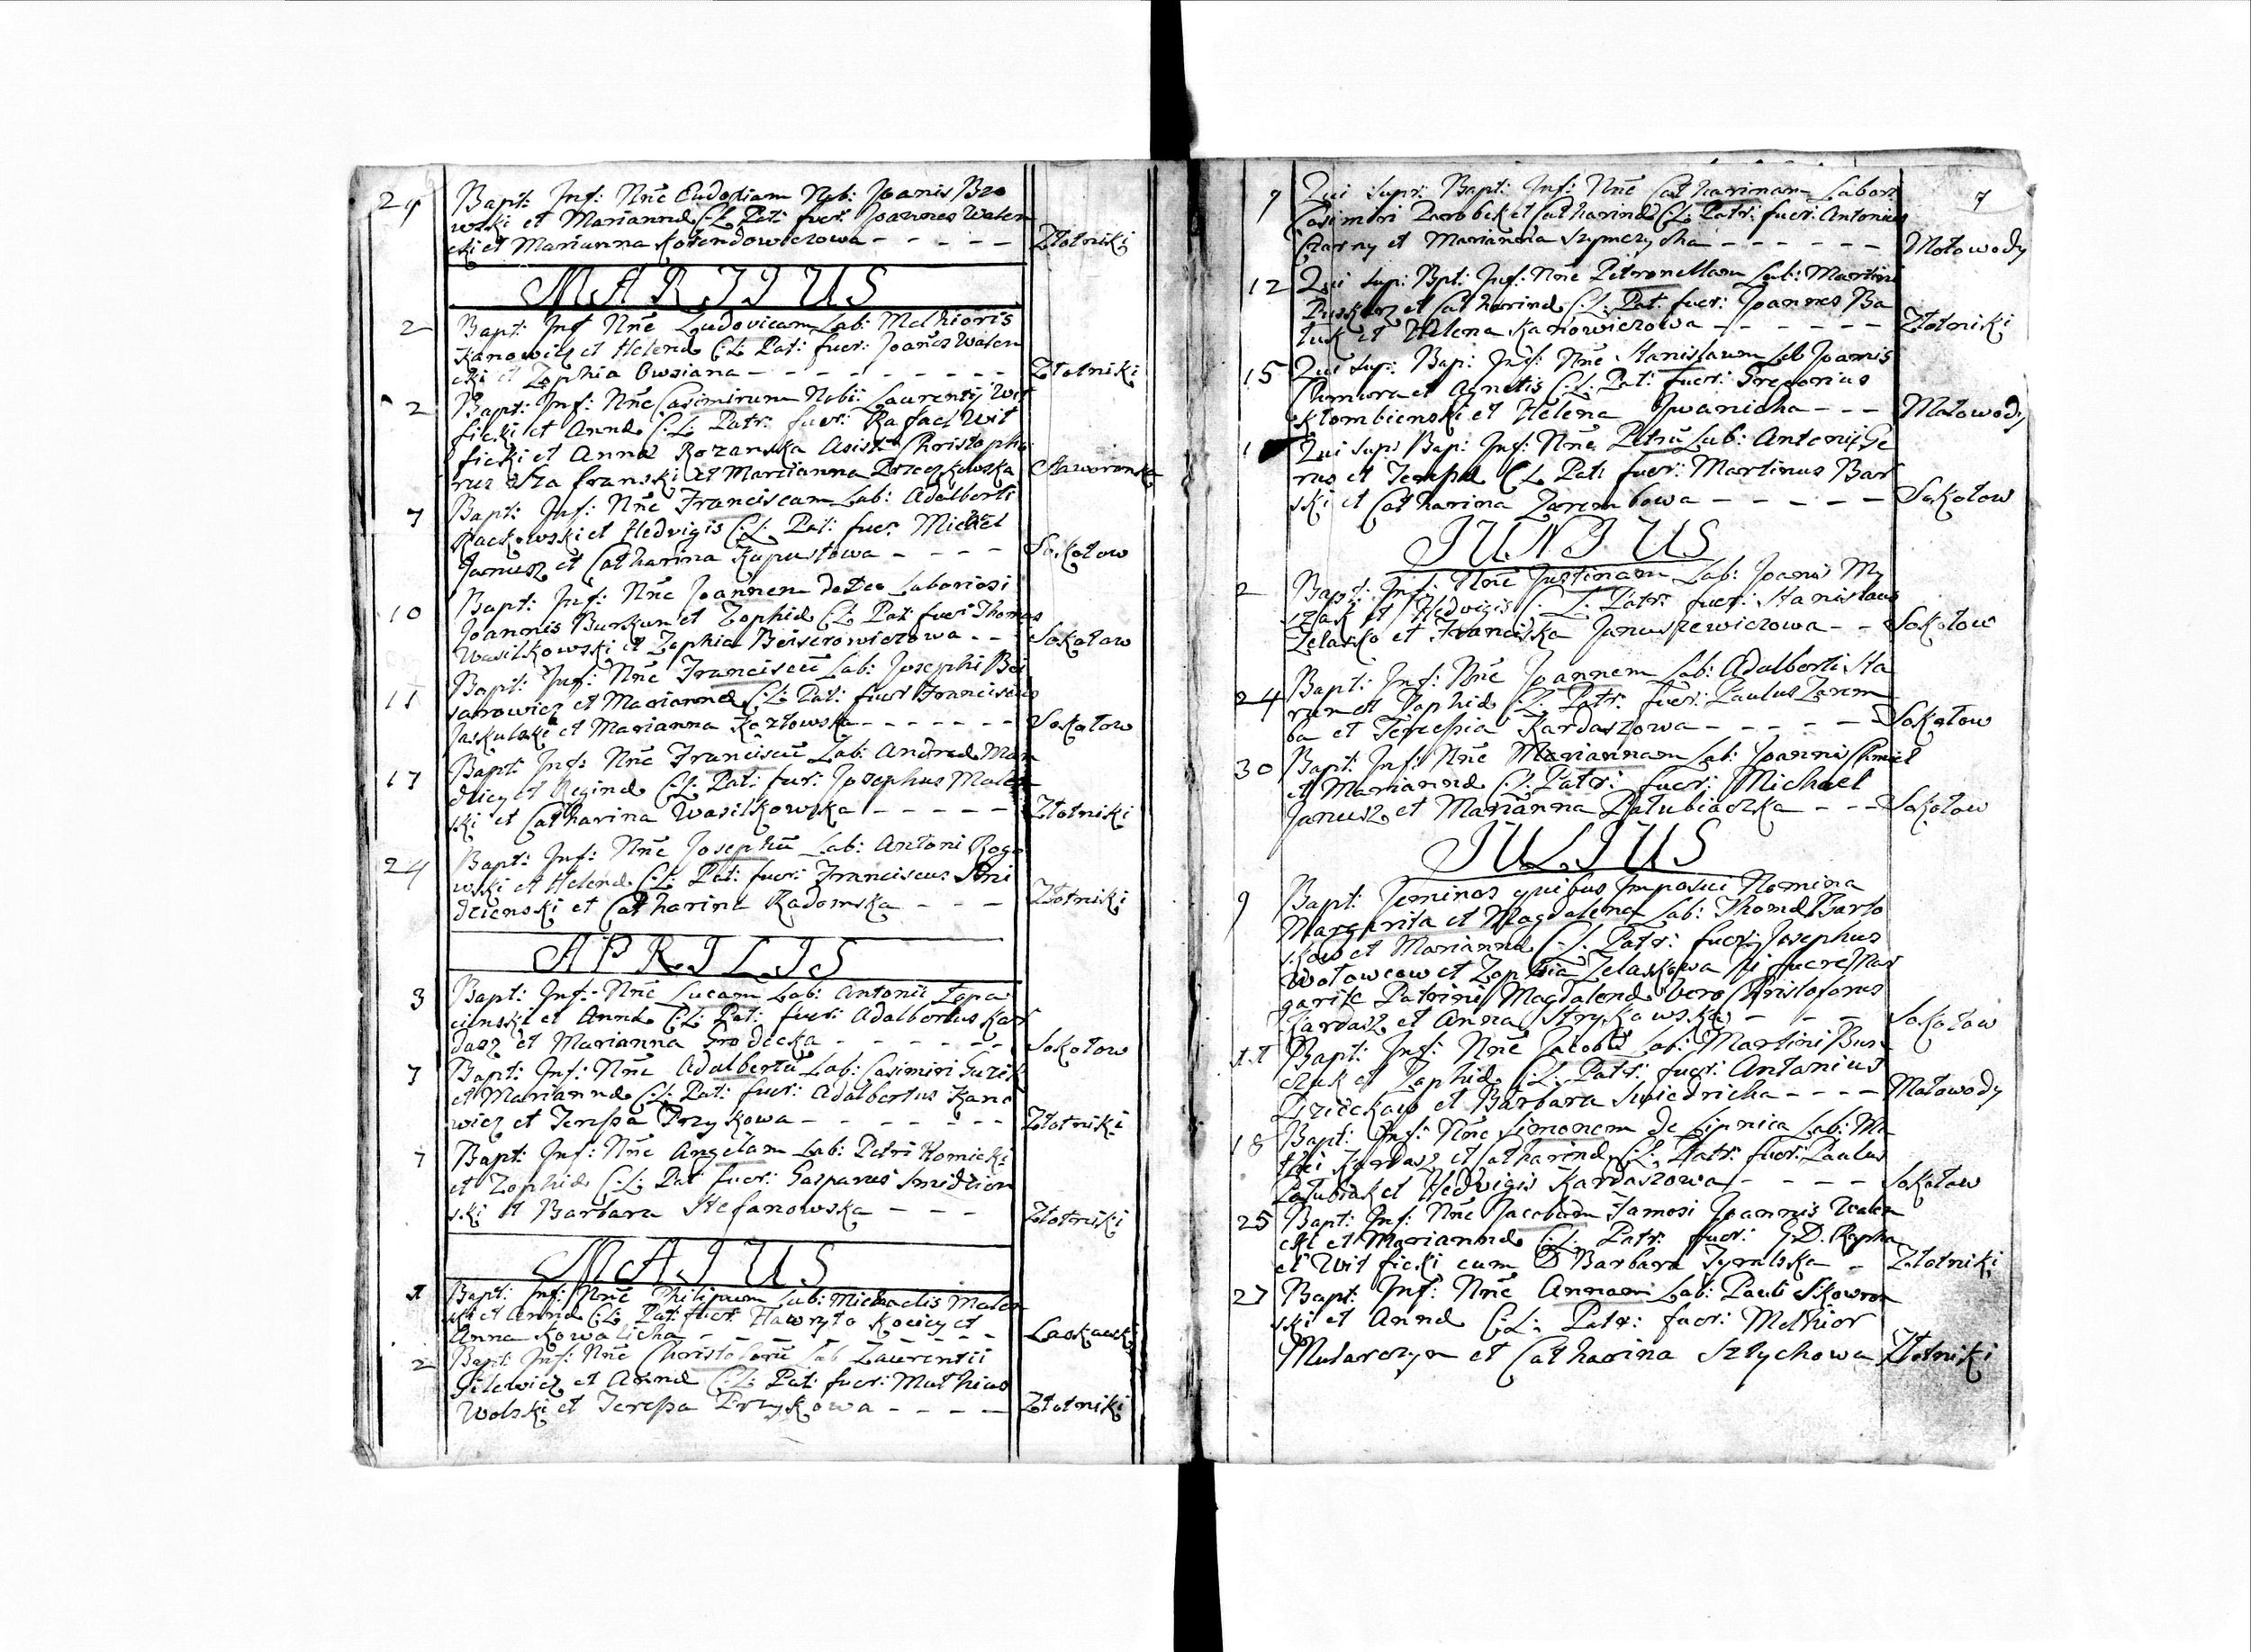 24 Bapt: Inf: Nñe Eudoxiam Nob: Joanis Bro
wski et Mariannæ C:L: Pat: fuer: Joannes Walen
cki et Marianna Kolendowiczowa - - - - - Złotniki
MARTIUS
2 Bapt: Inf Nñe Ludovicam Lab: Melhioris
Kanowicz et Helenæ C:L: Pat: fuer: Joañes Walen
cki et Zophia Owsiana - - - - - - - - - Złotniki
2 Bapt: Inf: Nñe Casimirum Nobi: Laurentij Wit
ficki et Annæ C:L: Patr: fuer: Rafael Wit
ficki et Anna Rozanska Asist: Christopho
rus et Marcianna Brzeczkowska
7 Bapt: Inf: Nñe Franciscam Lab: Adalberti
Rackowski et Hedvigis C:L: Pat: fuer: Michæl
Janusz et Catharina Kapustowa - - - - Sokołow
10 Bapt: Inf: Nñe Joannem de Deo Laboriosi
Joannis Burkun et Zophiæ C:L: Pat: fuer: Thomas
Wasilkowski et Zophia Beiserowiczowa - - - Sokołow
11 Bapt: Inf: Nñe Franciscū Lab: Josephi Bei
sarowicz et Mariannæ C:L: Pat: fuer Franciscus
Jaskulski et Marianna Kozłowska - - - - - - - Sokołow
17 Bapt: Inf: Nñe Franciscū Lab: Andreæ Man
dziey et Reginæ C:L: Pat: fur: Josephus Malen
ski et Catharina Wasilkowska - - - - - Złotniki
24 Bapt: Inf: Nñe Josephū Lab: Antoni Rogo
wski et Helenæ C:L: Pat: fuer: Franciscus Smi
dzienski et Catharina Radomska - - - Złotniki
APRILIS
3 Bapt: Inf: Nñe Lucam Lab: Antonii Lopa
cienski et Annæ C:L: Pat: fuer: Adalbertus Kar
dasz et Marianna Grodecka - - - - - - Sokołow
7 Bapt: Inf: Nñe Adalbertū Lab: Casimiri Guzik
et Mariannæ C:L: Pat: fuer: Adalbertus Kano
wicz et Teressa Przykowa - - - - - - - Złotniki
7 Bapt: Inf: Nñe Angelam Lab: Petri Homicki
et Zophiæ C:L: Pat fuer: Gasparus Smidzien
ski et Barbara Stefanowska - - - Złotniki
MAJUS
1 Bapt: Inf: Nñe Philipum Lab: Michaelis Malen
ski et Annæ C:L: Pat: fuer: Hawryło Kociey et
Anna Kowalicha - - - - - - - -
2 Bapt: Inf: Nñe Christoforū Lab Laurentii
Gilewicz et Annæ C:L: Pat: fuer: Mathias
Wolski et Teressa Przykowa - - - - Złotniki
7
9 Qui supr: Bapt: Inf: Nñe Catharinam Labori
Casimiri Zarobek et Catharinæ C:L: Patr: fuer: Antonius
Czarny et Marianna Szymczycha - - - - - - Mołowody
12 Qui sup: Bpt: Inf: Nñe Petronellam Lab: Martini
Puskarz et Catharinæ C:L: Pat: fuer: Joannes Ba
tuk et Helena Kanowiczowa - - - - - - Złotniki
15 Qui sup: Bap: Inf: Nñe Stanislaum Lab Joannis
Chmura et Agnetis C:L: Pat: fuer: Gregorius
Kłombienski et Helena Iwanicha - - - Małowody
Qui sup: Bap: Inf: Nñe Petrū Lab: Antonij Ge
rus et Teressæ C L Pat: fuer: Martinus Bar
ski et Catharina Zarembowa - - - - - Sokołow
JUNIUS
2 Bapt: Inf: Nñe Justinam Lab: Joanis My
szak et Hedvigis C:L: Patr: fuer: Stanislaus
Zelasko et Franciska Januszewiczowa - - Sokołow
24 Bapt: Inf: Nñe Joannem Lab: Adalberti Sta
run et Zophiæ C:L: Patr: fuer: Paulus Zarem
ba et Teressia Kardaszowa - - - - - Sokołow
30 Bapt: Inf: Nñe Mariannam Lab: Joannis Chmiel
et Mariannæ C:L: Patr: fuer: Michael
Janusz et Marianna Pałubiaczka - - - Sokołow
JULIUS
9 Bapt: Geminos quibus Imposui Nomina
Margarita et Magdalena Lab: Thomæ Barto
skow et Mariannæ C:L: Patr: fuer: Josephus
Wołowcow et Zophia Zelaskowa hi fuere Mar
garitæ Patrini Magdalenæ Vero Christoforus
Kardasz et Anna Strykowska - - - Sokołow
11 Bapt: Inf: Nñe Jacobū Lab: Martini Bur
czak et Zophiæ C:L: Patr: fuer: Antonius
et Barbara Swiedricha - - - - Małowody
18 Bapt: Inf: Nñe Simonem de Lipnica Lab: Ma
thei Kardasz et Catharinæ C:L: Patr: fuer: Paulus
Pałubiak et Hedvigis Kardaszowa - - - - Sokołow
25 Bapt: Inf: Nñe Jacobum Famosi Joannis Walen
cki et Mariannæ C:L: Patr: fuer: G.D. Rapha
el Witficki cum D Barbara Tyralska - Złotniki
27 Bapt: Inf: Nñe Annam Lab: Pauli Skowron
ski et Annæ C:L: Patr: fuer: Melhior
Mularczyn et Catharina Sztychowa Złotniki